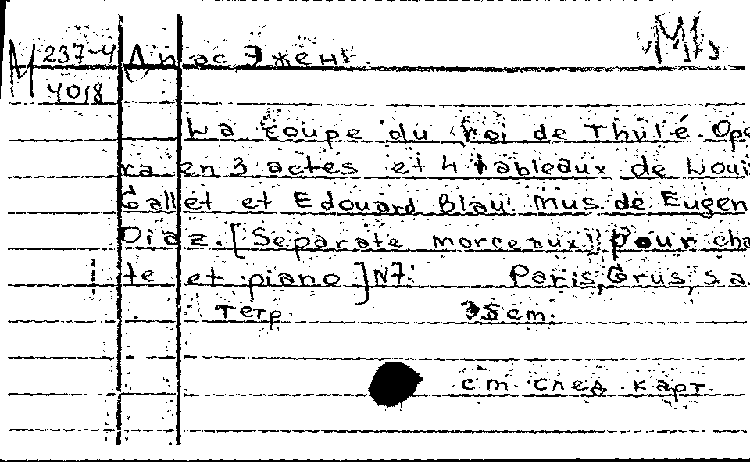 М 237-4 Диас Эжен. М1,
4018
La coupe du Roi de Thulé. Ope
ra en 3 actes et 4 tableaux de Loui
Gallet et Edouard Blau. Mus de Eugen
Diaz. [Separate morceaux] pour cha
te et piano.] N7. Paris, Grus, s.a.
тетр. 35 cm.
см. след. карт.